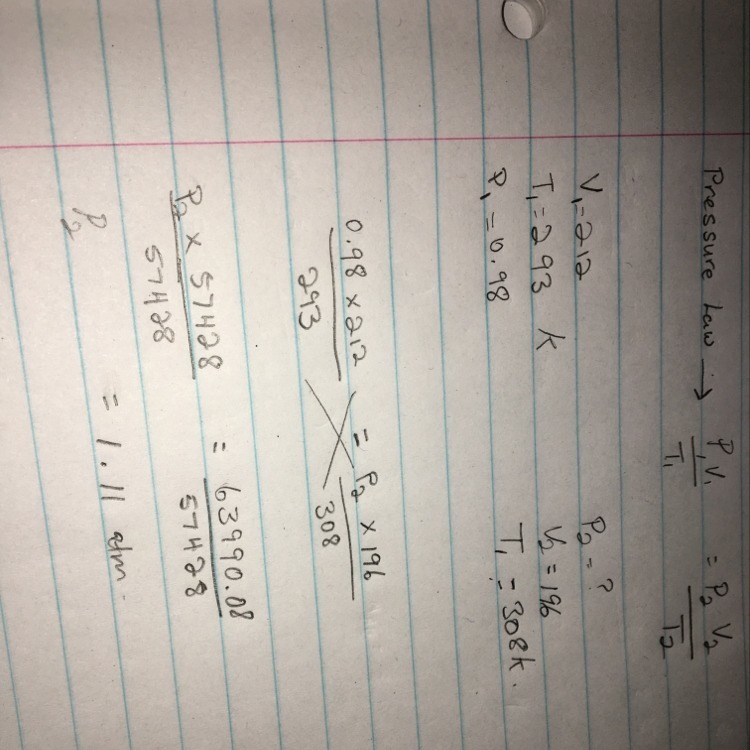 Pressure Law → P₁V₁/T₁ = P₂V₂/T₂
V₁=212 P₂=?
T₁=293 K V₂=196
P₁=0.98 T₁=308K.
0.98 × 212/293 = P₂ × 196/308
P₂ × 57428/57428 = 63990.08/57428
P₂ = 1.11 atm.